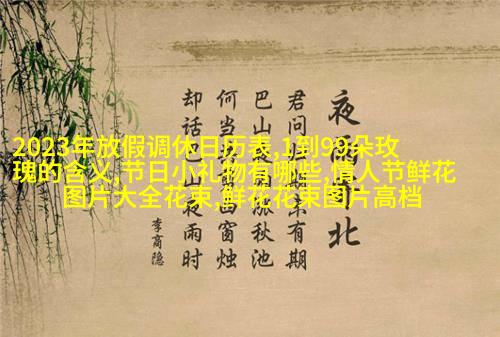 2023年放假调休日历表,1到99朵玫
瑰的含义,节日小礼物有哪些,情人节鲜花
图片大全花束,鲜花花束图片高档
夜雨北
君问有期
巴山涨秋池
何当西窗烛
却话巴山夜雨时
李商隐